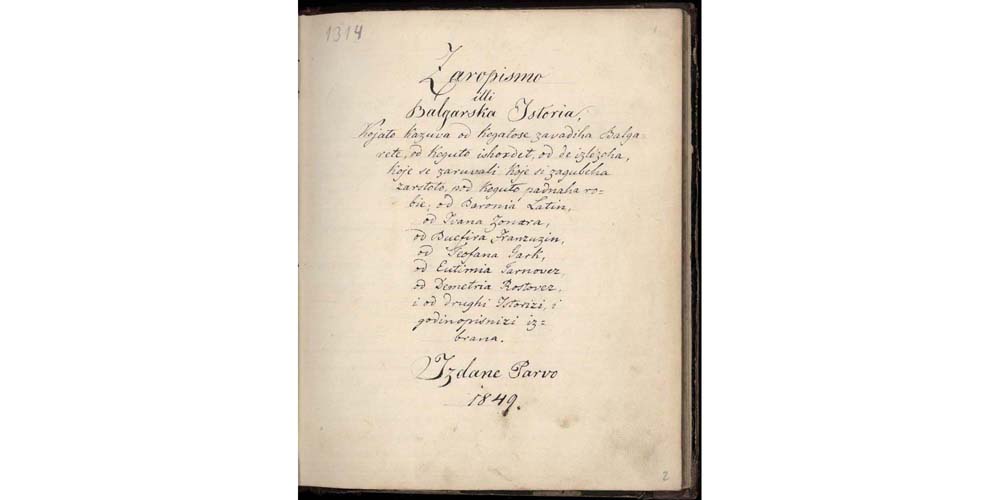 1314
1
Zaropismo
illi
Balgarska Istoria,
Kojato kazuva od kogatose zavadiha Balga-
rete, od koguto ishordet, od de izlezeha,
koje se zaruvali koje si zagubeha
zarstoto, pod koguto padnaha ro-
bie; od Baronia Latin,
od Ivana Zonara,
od Bucfira Franzuzin,
od Teofana Gark,
od Eutimia Tarnovez,
od Demetria Rostovez,
i od drughi Istorizi, i
godinopisnizi iz=
brana.
Izdane Parvo
1849.
2